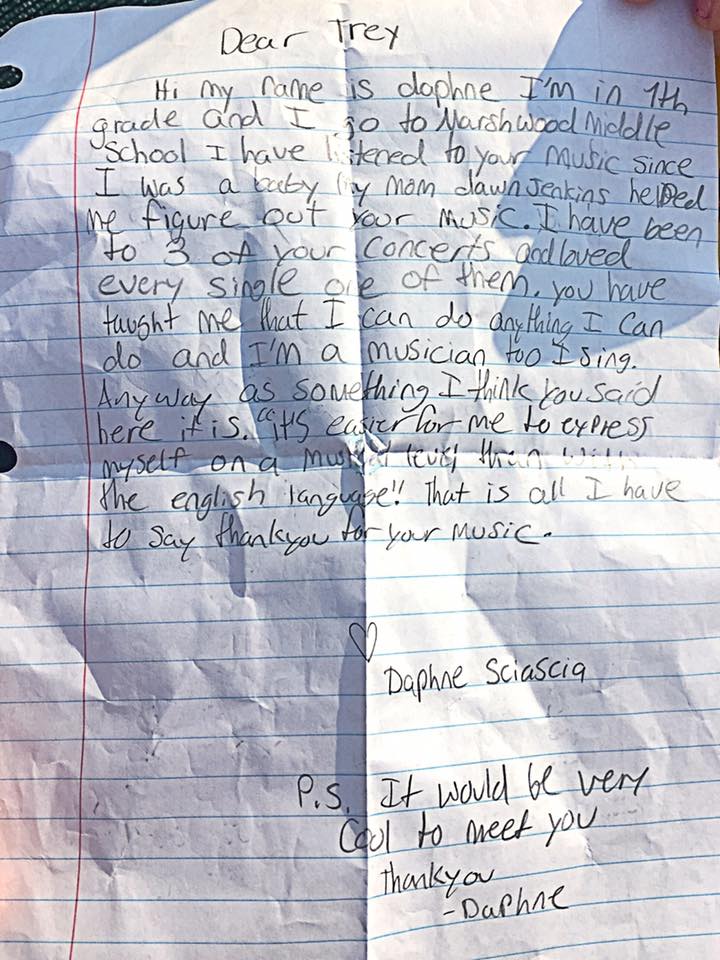 Dear Trey
Hi my name is daphne I'm in 7th
grade and I go to Marshwood Middle
School I have listened to your music since
I was a baby my mom dawn Jenkins helped
me figure out your music. I have been
to 3 of your concerts and loved
every single one of them. you have
taught me that I can do anything I can
do and I'm a musician too I sing.
Anyway as something I think you said
here it is. "it's easier for me to express
myself on a musical level than with
the english language!! That is all I have
to say thankyou for your music.
♡
Daphne Sciascia
P.S. It would be very
Cool to meet you
thankyou
-Daphne